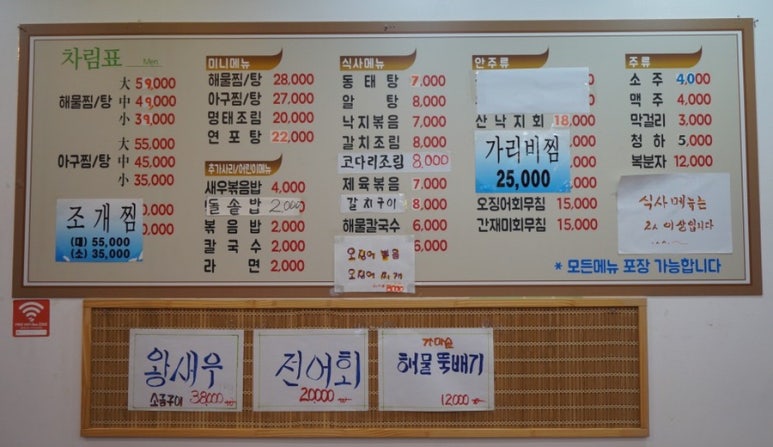 차림표 Men
大 59,000
해물찜/탕 中 49,000
小 39,000
大 55,000
아구찜/탕 中 45,000
小 35,000
조개찜
(대) 55,000
(소) 35,000
미니메뉴
해물찜/탕 28,000
아구찜/탕 27,000
명태조림 20,000
연포탕 22,000
추가사리/어린이메뉴
새우볶음밥 4,000
돌솥밥 2,000
볶음밥 2,000
칼국수 2,000
라면 2,000
식사메뉴
동태탕 7,000
알탕 8,000
낙지볶음 7,000
갈치조림 8,000
코다리조림 8,000
제육볶음 7,000
갈치구이 8,000
해물칼국수 6,000
6,000
안주류
산낙지회 18,000
가리비찜
25,000
오징어회무침 15,000
간재미회무침 15,000
주류
소주 4,000
맥주 4,000
막걸리 3,000
청하 5,000
복분자 12,000
식사메뉴는
2人 이상입니다
* 모든메뉴 포장 가능합니다
왕새우
소금구이 38,000
전어회
20,000
해물뚝배기
12,000